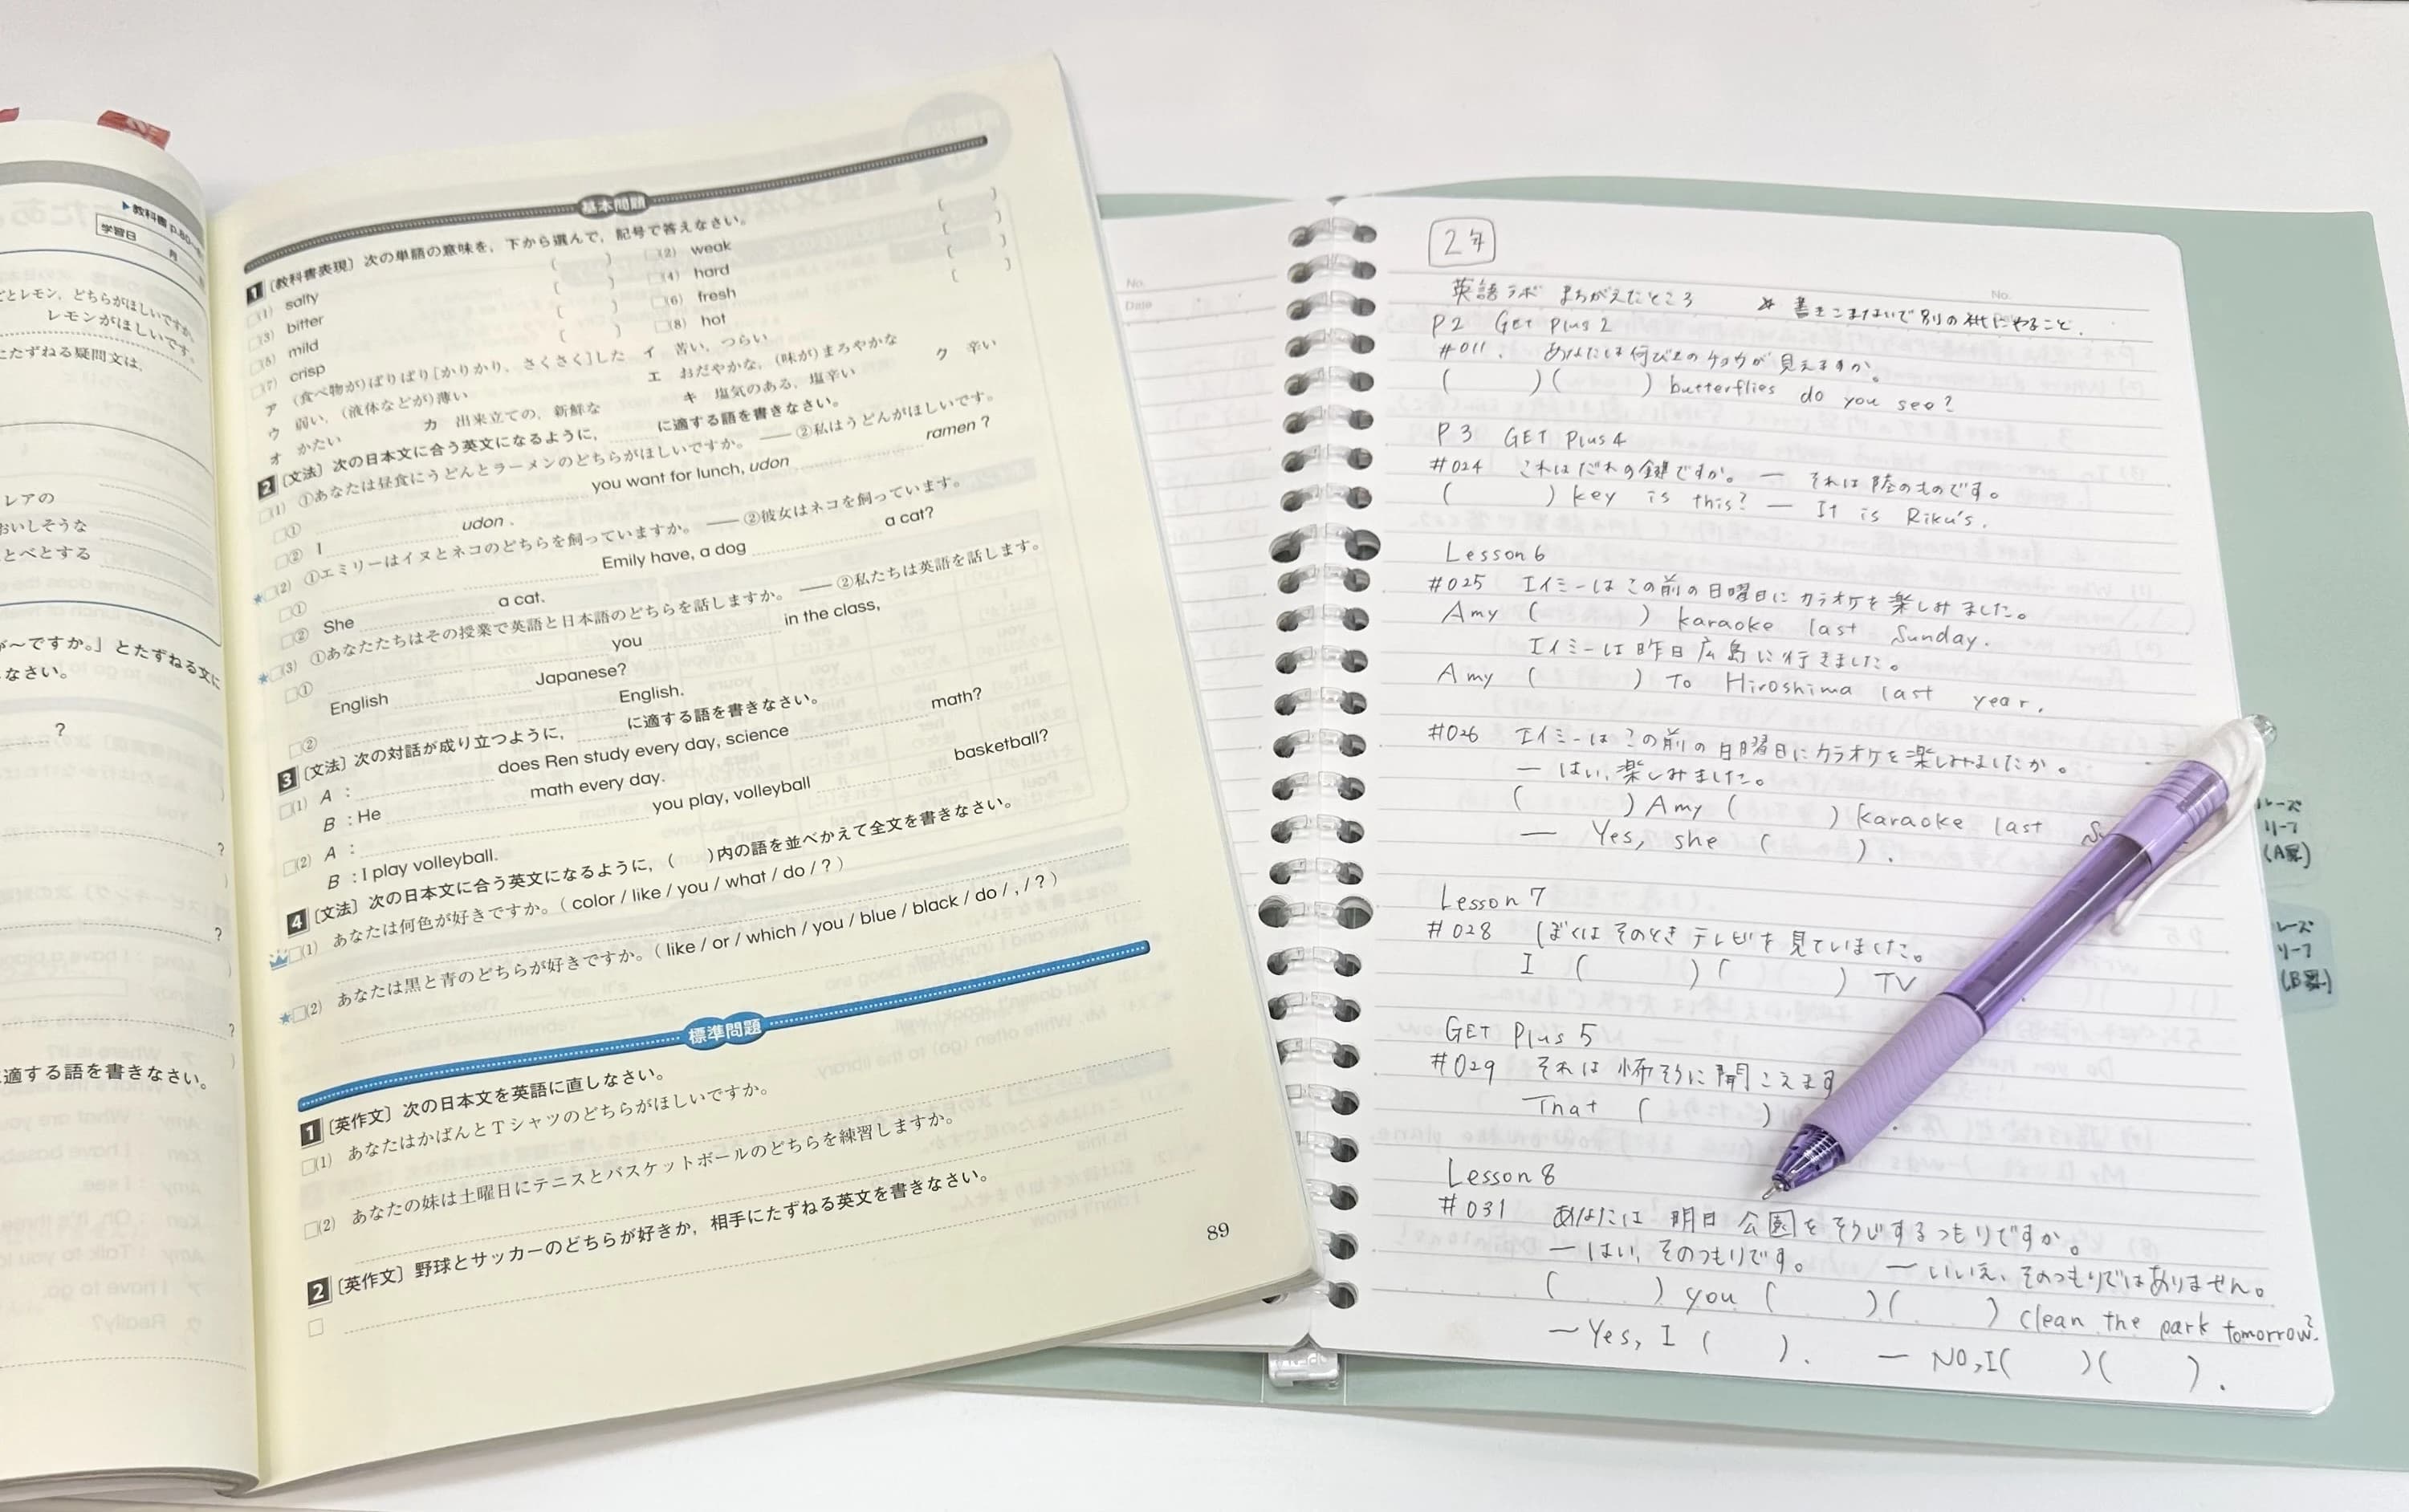 ▶教科書 p.80
学習日 月
ごとレモン，どちらがほしいですか
レモンがほしいです。
にたずねる疑問文は，
レアの
おいしそうな
とべとする
が～ですか。」とたずねる文に
なさい。
?
?
?
?
適する語を書きなさい。
基本問題
1 〔教科書表現〕次の単語の意味を，下から選んで，記号で答えなさい。
□(1) salty ( ) □(2) weak ( )
□(3) bitter ( ) □(4) hard ( )
□(5) mild ( ) □(6) fresh ( )
□(7) crisp ( ) □(8) hot ( )
ア (食べ物が)ぱりぱり[かりかり，さくさく]した イ 苦い，つらい
ウ 弱い，(液体などが)薄い エ おだやかな，(味が)まろやかな
オ かたい カ 出来立ての，新鮮な キ 塩気のある，塩辛い ク 辛い
2 〔文法〕次の日本文に合う英文になるように， に適する語を書きなさい。
□(1) ①あなたは昼食にうどんとラーメンのどちらがほしいですか。 ——②私はうどんがほしいです。
□① you want for lunch, udon ramen ?
□② I udon .
★□(2) ①エミリーはイヌとネコのどちらを飼っていますか。 ——②彼女はネコを飼っています。
□① Emily have, a dog a cat?
□② She a cat.
★□(3) ①あなたたちはその授業で英語と日本語のどちらを話しますか。 ——②私たちは英語を話します。
□① you in the class,
English Japanese?
□② English.
3 〔文法〕次の対話が成り立つように， に適する語を書きなさい。
□(1) A : does Ren study every day, science math?
B : He math every day.
□(2) A : you play, volleyball basketball?
B : I play volleyball.
4 〔文法〕次の日本文に合う英文になるように，( )内の語を並べかえて全文を書きなさい。
□(1) あなたは何色が好きですか。( color / like / you / what / do / ? )
★□(2) あなたは黒と青のどちらが好きですか。( like / or / which / you / blue / black / do / , / ? )
標準問題
1 〔英作文〕次の日本文を英語に直しなさい。
□(1) あなたはかばんとTシャツのどちらがほしいですか。
□(2) あなたの妹は土曜日にテニスとバスケットボールのどちらを練習しますか。
2 〔英作文〕野球とサッカーのどちらが好きか，相手にたずねる英文を書きなさい。
□
89
No.
Date
2年
No.
英語ラボ まちがえたところ ※ 書きこまないで別の紙にやること.
P2 GET Plus 2
#011. あなたは何びきのチョウが見えますか。
( )( ) butterflies do you see?
P3 GET Plus 4
#024 これはだれの鍵ですか。— それは陸のものです。
( ) key is this? — It is Riku's.
Lesson 6
#025 エイミーはこの前の日曜日にカラオケを楽しみました。
Amy ( ) karaoke last Sunday.
エイミーは昨日広島に行きました。
Amy ( ) to Hiroshima last year.
#026 エイミーはこの前の日曜日にカラオケを楽しみましたか。
— はい、楽しみました。
( ) Amy ( ) karaoke last
— Yes, she ( ).
Lesson 7
#028 ぼくはそのときテレビを見ていました。
I ( )( ) TV
GET Plus 5
#029 それは怖そうに聞こえます
That ( )
Lesson 8
#031 あなたは明日公園をそうじするつもりですか。
— はい、そのつもりです。 — いいえ、そのつもりではありません。
( ) you ( )( ) clean the park tomorrow?
— Yes, I ( ). — No, I ( )( ).
ルーズ
リーフ
(A罫)
ルーズ
リーフ
(B罫)